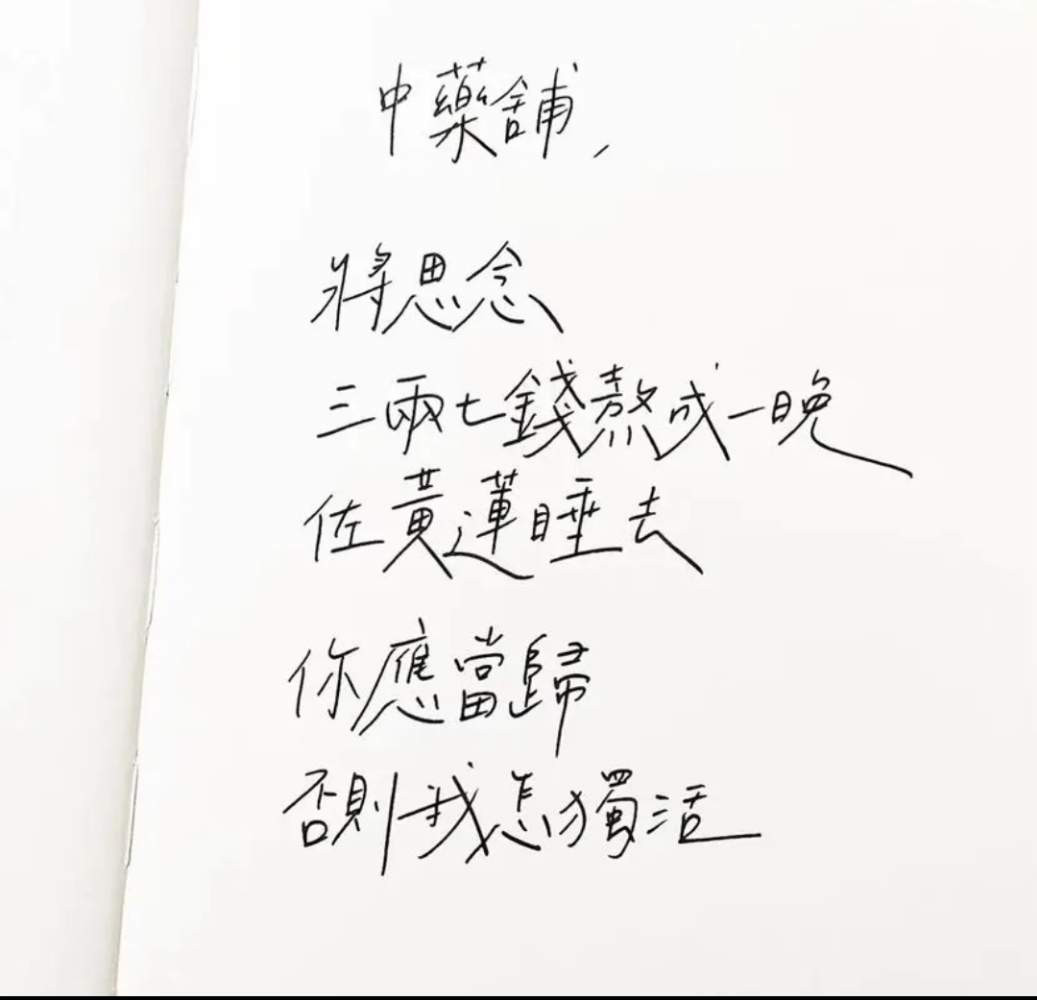 中藥舖，
將思念
三兩七錢熬成一晚
佐黃蓮睡去
你應當歸
否則我怎獨活